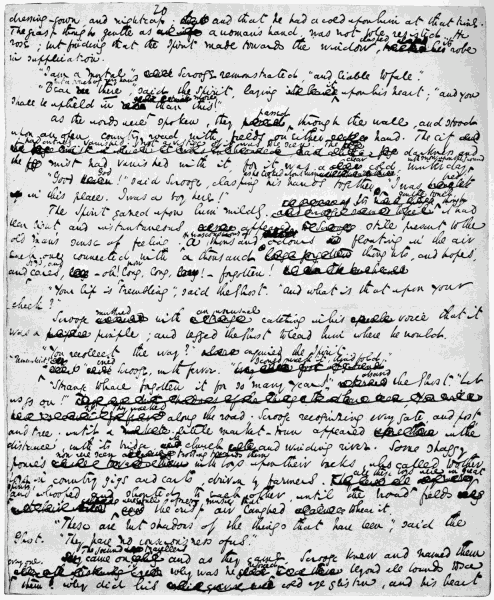 20
dressing-gown, and nightcap; and that he had a cold upon him at that time.
The grasp though gentle as a woman's hand, was not to be resisted. He
rose; but finding that the Spirit made towards the window, clasped its robe
in supplication.
"I am a mortal," Scrooge remonstrated, "and liable to fall."
"Bear but a touch of my hand there," said the Spirit, laying it upon his heart; "and you
shall be upheld in more than this!"
As the words were spoken, they passed through the wall, and stood
upon an open country road, with fields on either hand. The city had
entirely vanished. Not a vestige of it was to be seen. The darkness and
the mist had vanished with it, for it was a clear, cold, winter day,
with snow upon the ground
"Good God!" said Scrooge, clasping his hands together, as he looked about him. "I was bred
in this place. I was a boy here!"
The Spirit gazed upon him mildly. Its gentle touch, though it had
been light and instantaneous, appeared still present to the
old man's sense of feeling. He was conscious of a thousand odours floating in the air,
each one connected with a thousand thoughts, and hopes,
and joys, and cares, long, long, forgotten!
"Your lip is trembling," said the Ghost. "And what is that upon your
cheek?"
Scrooge muttered, with an unusual catching in his voice, that it
was a pimple; and begged the Ghost to lead him where he would.
"You recollect the way?" inquired the Spirit.
"Remember it!" cried Scrooge, with fervor. "I could walk it blindfold."
"Strange to have forgotten it for so many years!" the Ghost. "Let
us go on!"
They walked along the road. Scrooge recognising every gate, and post,
and tree. until a little market-town appeared in the
distance, with its bridge, its church, and winding river. Some shaggy
ponies now were seen trotting towards them with boys upon their backs, who called to other
boys in country gigs and carts, driven by farmers. All these boys were in great
spirits, and shouted to each other, until the broad fields
were so full of merry music, that the crisp air laughed to hear it.
"These are but shadows of the things that have been," said the
Ghost. "They have no consciousness of us."
The jocund travellers came on; and as they came, Scrooge knew and named them
every one. why was he rejoiced beyond all bounds to see
them! why did his cold eye glisten, and his heart